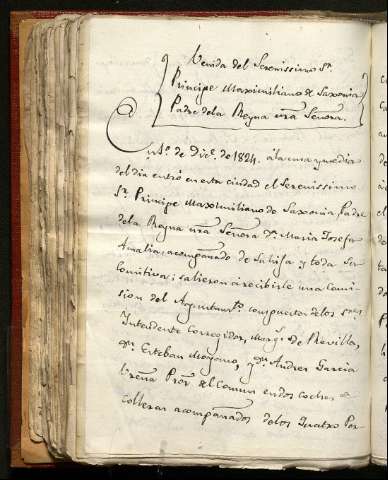 Venida del Serenissimo Sr.
Principe Maximiliano de Saxonia
Padre dela Reyna nrâ Señora.
de Dice. de 1824. à la una y media
del dia entrò en esta ciudad el Serenissimo
Sr. Principe Maximiliano de Saxonia Padre
dela Reyna nrâ Señora Da. Maria Josefa
Amalia; acompañado de su hija y toda su
comitiva: salieron a recibirle una comi-
sion del Ayuntamto. compuesta delos sres
Intendente Corregidor, Marqs. de Revilla,
Dn. Esteban Moyano, y Dn. Andres Garcia
Procr. del Comun en dos coches de
colleras acompañados delos Quatro Por-